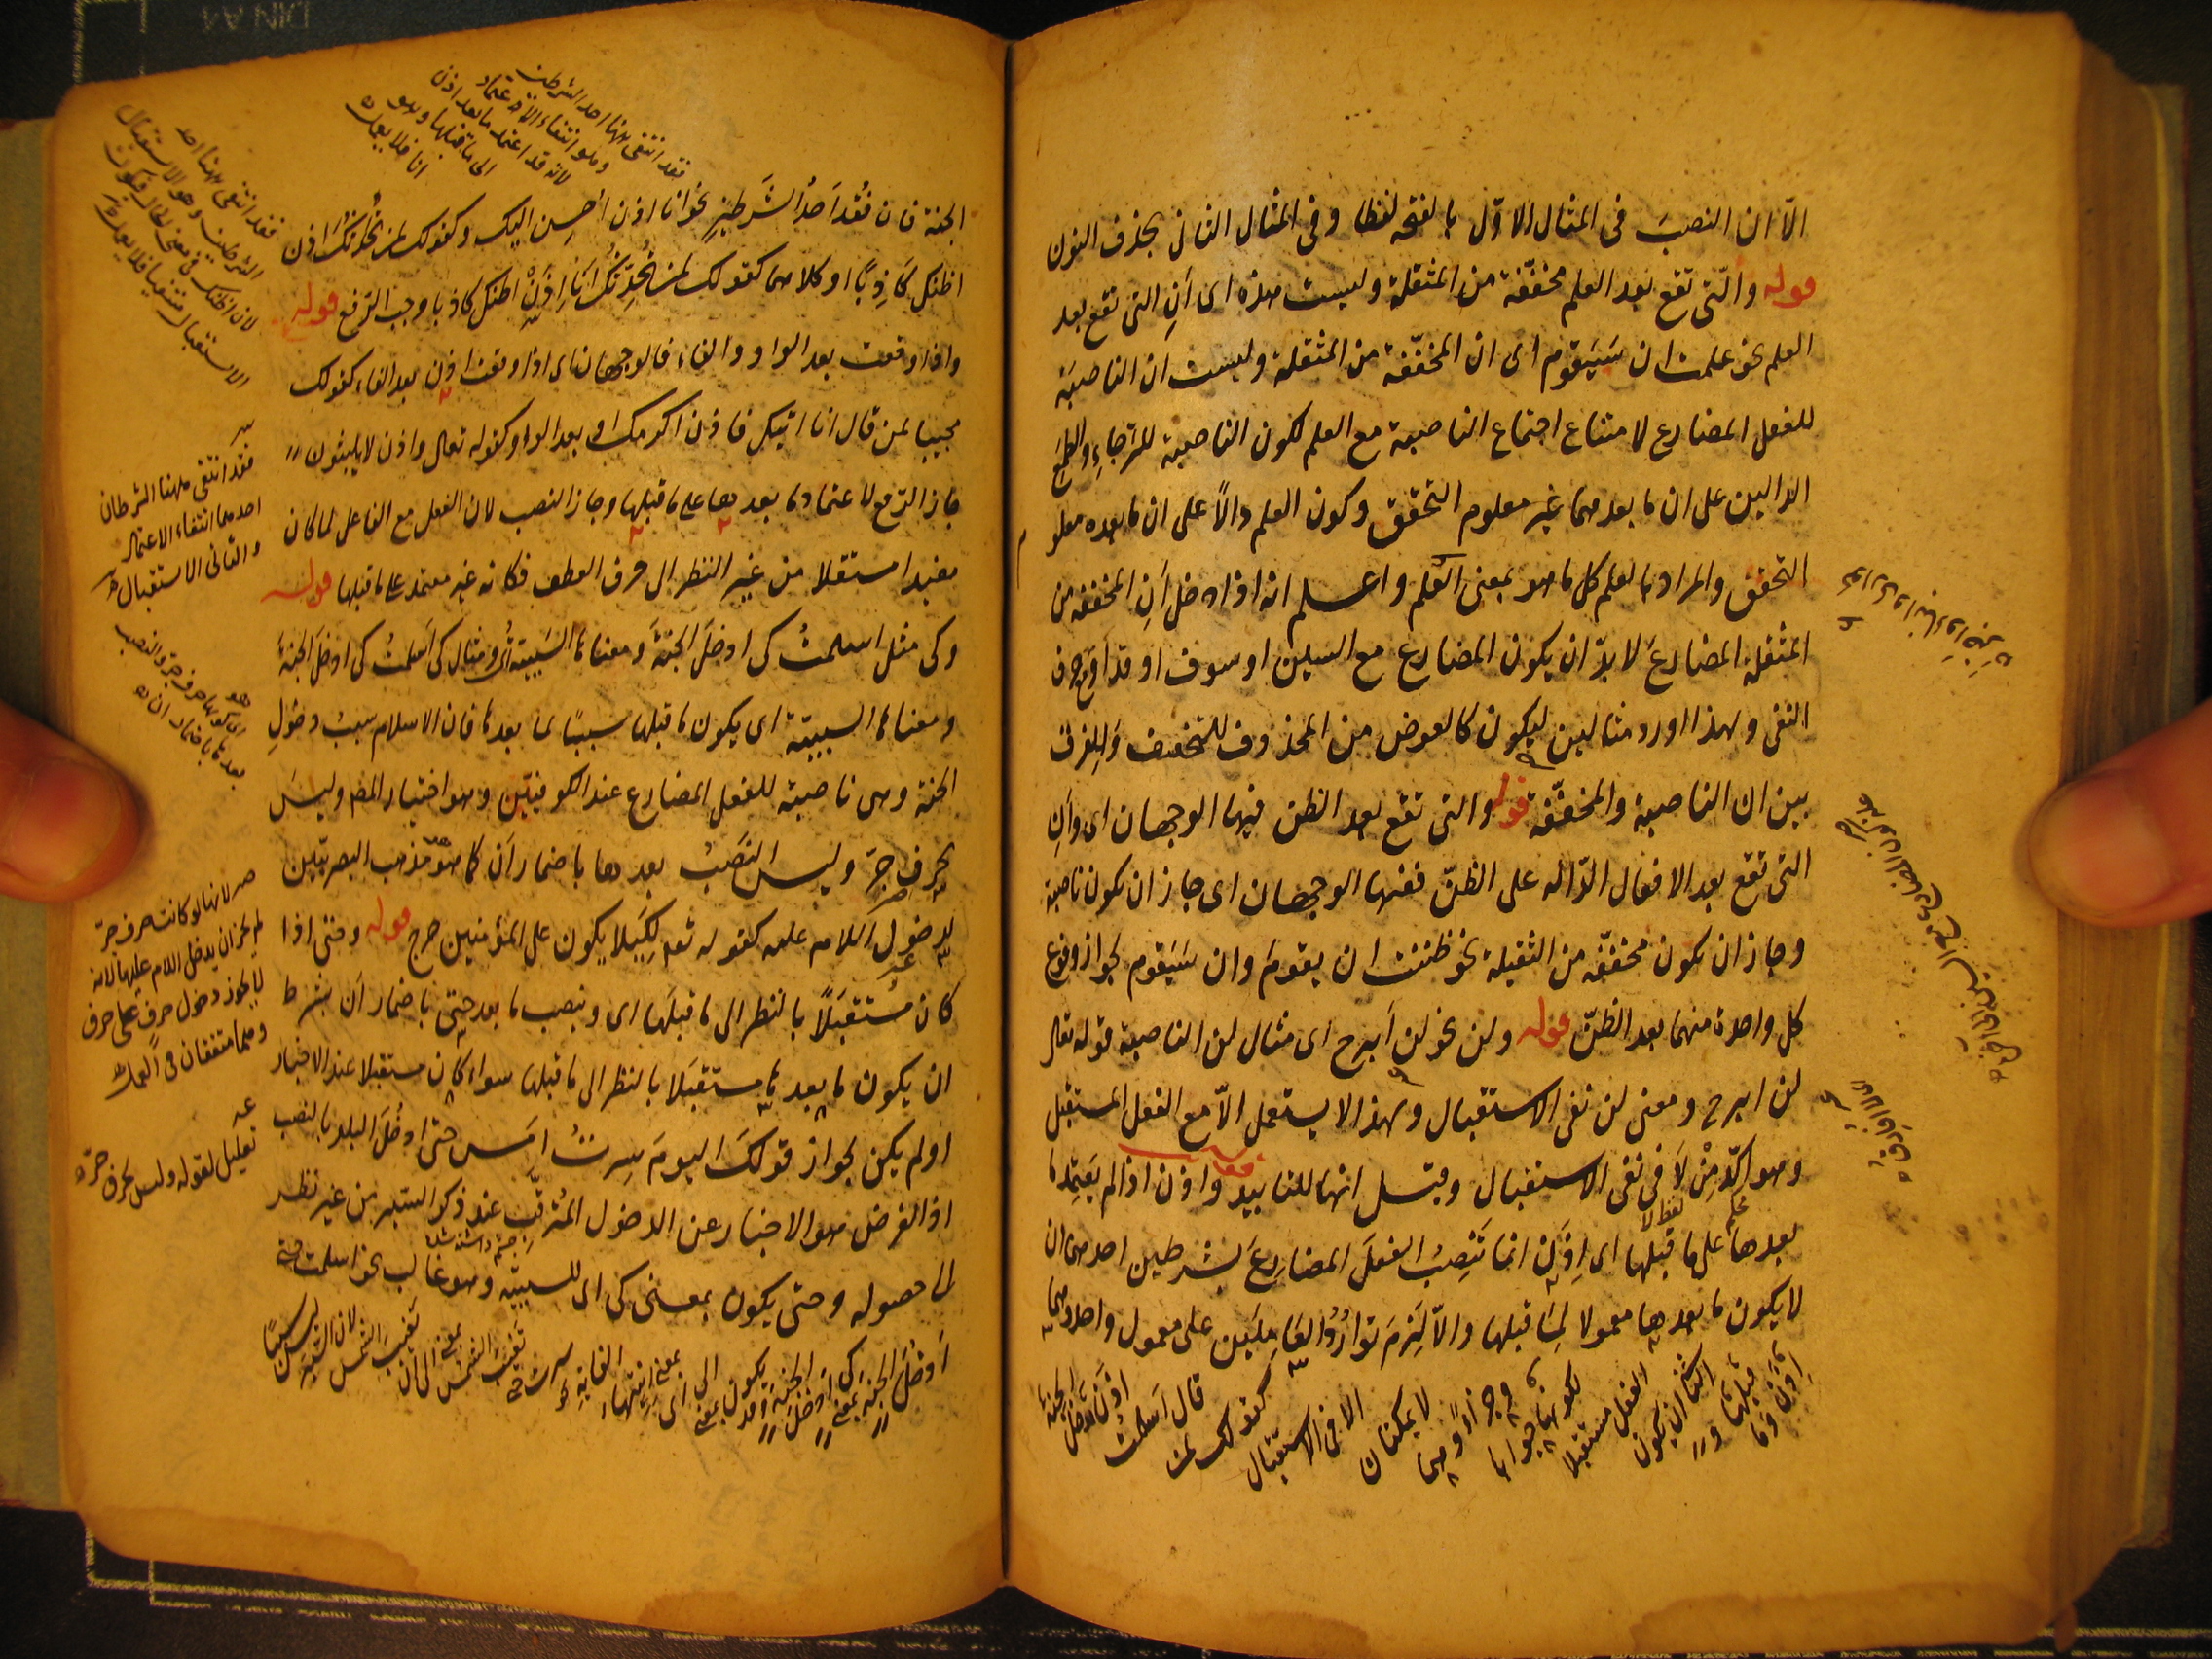 الّا ان النصبَ فى المثال الاوّل بالفتحه لفظا وفى المثال الثانى بحذف النون
قوله والّتى تقع بعد العلم مخففّة من المثقلة وليست هذه اى أنِ التى تقع بعد
العلم نحو علمت ان سَيَقوم اى ان المخففّة من المثقلة وليست ان الناصبَة
للفعل المضارع لامتناع اجتماع الناصبة مع العلم لكون الناصبة للرّجاءِ والطمَع
الدالين على ان ما بعدهما غير معلوم التحقق وكون العلم دالاً على ان ما بعده معلو
التحقق والمراد بالعلم كل ما هو بمعنى العِلم واعلم انه اذا دخل أنِ المخففه من
المثقلة المضارعَ لا بدّ ان يكون المضارع مع السين او سوف او قد اوْ حرف
النفى ولهذا اورد مثالين ليكون كالعوض من المحذوف للتخفيف وَلِلفرق
بين ان الناصبة والمخففّة قوله والتى تقع بعد الظن فيها الوجهان اى وأنِ
التى تقع بعد الافعال الدّاله على الظنّ ففيها الوجهان اى جاز ان يكون ناصبة
وجاز ان يكون مخففّه من الثقيلة نحو ظننت ان يقومَ وان سَيَقوم لجواز وقوع
كل واحدة منهما بعد الظنّ قوله ولن نحو لن أبرح اى مثال لن الناصبة قوله تعالى
لن ابرح ومعنى لن نفى الاستقبال ولهذا لا يستعمل الّا مع الفعل المستقبل
وهو اكّد مِنْ لَا فى نفى الاستقبال وقيل انها للتابيد واذن اذا لم يَعتمِد ما
بعدها على ما قبلها اى اِذَن انما تَنصِبُ الفعلَ المضارعَ بشرطين احدهما ان
لا يكون ما بعدها معمولا لِمَا قبلها والّا لَزِمَ تواردُ العَامِلَين على معمول واحد وهما
اِذَن وَمَا
قبلها و
الثانى ان يكون
الفعل مستقبلا
لكونها جوابا
وجزاءً وهما
لا يمكنان
الا فى الاستقبال
كقولك لمن
قال اَسلمتُ
اذَن تدخلَ الجنة
الجنة فان فُقد اَحدُ الشرطينِ نحو انا اذن اُحسِن اليك وكقولك لمن يُحدّثكَ اذن
اظنك كَاذِبًا او كلاهما كقولك لمن يُحدِّثكَ انَا اِذَنْ اظنك كاذبا وجب الرّفع قوله
واذا وقعت بعد الواو والفاء فالوجهان اى اذا وقعت اذن بعد الفاء كقولك
مجيبا لمن قال انا اتيك فاذن اكرمك او بعد الواو كقوله تعالى واذن لا يلبثون
جاز الرّفع لاعتماد ما بعدها على ما قبلها وجاز النصب لان الفعل مع الفاعل لما كان
مفيدا مستقلا من غير النظر الى حرف العطف فكانه غير معتمد على ما قبلها قوله
وكى مثل اسلمتُ كى ادخلَ الجنةَ ومعناها السَببيّة اى ومثال كى اَسلمتُ كى ادخلَ الجنةَ
ومعناها السببيّة اى يكون ما قبلها سببًا لما بعدها فان الاسلام سببُ دخولِ
الجنة وهى ناصبة للفعل المضارع عند الكوفيّين وهو اختيار المصـ وليسَ
بحرف جرّ وليس النصَبُ بعدها باضمار أن كما هو مذهب البصريّين
لدخول اللام عليه كقوله تعـ لِكَيلا يكون على المؤمنين حرج قوله وحتى اذا
كان مُستقبَلاً بالنظر الى ما قبلَها اى وينصب ما بعد حتى باضمار اَن بشرط
ان يكون ما بعدها مستقبَلا بالنظر الى ما قبلها سواء كان مستقبلا عند الاخبار
او لم يكن لجواز قولكَ اليومَ سِرتُ امَس حتى ادخُلَ البلد بالنصب
اذ الغرض هو الاخبار عن الدخول المُترقَّب عند ذكر السّير من غير نظر
الى حصوله وحتى يكون بمعنى كى اى للسببيّة وهو غالب نحو اسلمت حتى
أدخُلَ الجنة بمعنى
كى ادخلَ
الجنةَ وقد
يكون بمعنى
الى اى
بمعنى انتهاء
الغاية نحو
سرت حتى
تغيبَ الشمس
بمعنى الى ان
تغيبَ الشمس
لان السّير
ليس سببًا
فقد انتفى ههنا احد الشرطين
وهو انتفاء الاعتماد
لانه قد اعتمد ما بعد اذن
الى ما قبلها وهو
انا فلا يعمل
فقد انتفى ههنا احد
الشرطين وهو الاستقبال
لان اظنك فى معنى الحال فيكون
الاستقبال منتفيا فلا يعمل
فقد انتفى ههنا الشرطان
احدهما انتفاء الاعتماد
والثانى الاستقبال
بعدها باضمار ان
لانها لو كانت حرف جرّ
لم يجز ان يدخل اللام عليها لانه
لا يجوز دخول حرفٍ على حرف
وهما متفقان فى العمل
تعليل لقوله وليس بحرف جرّ